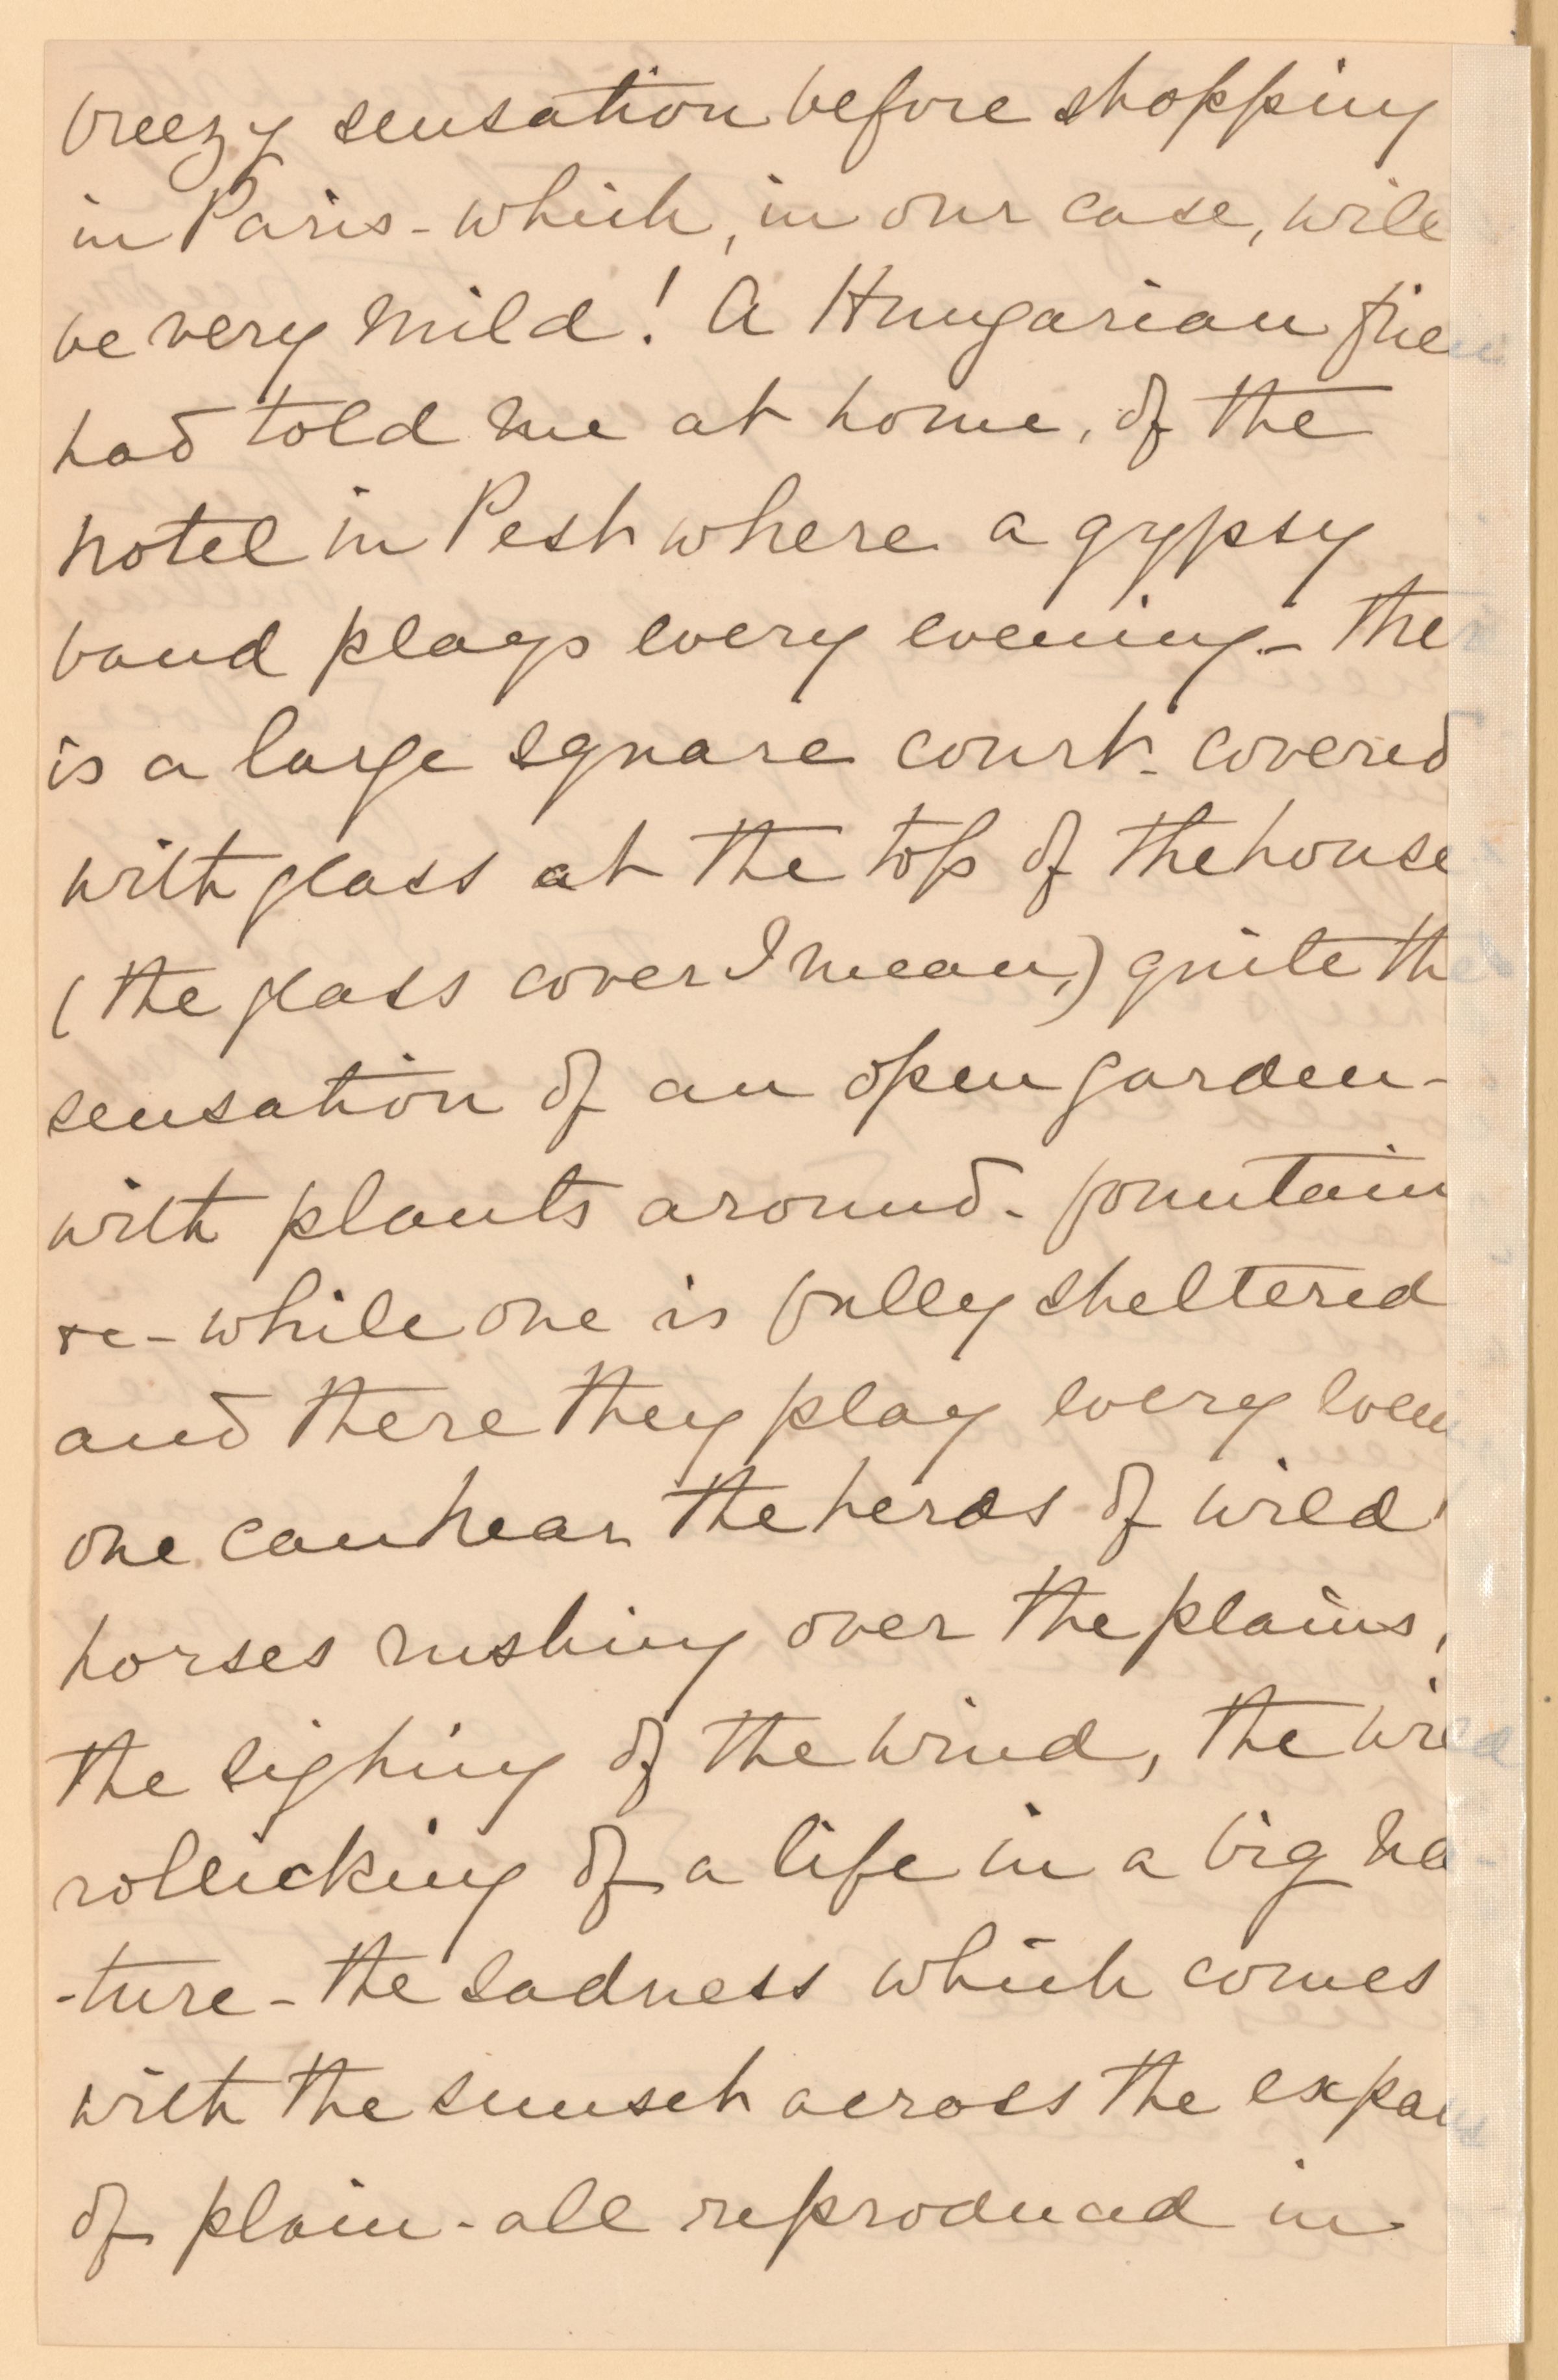 breezy sensation before shopping
in Paris - which, in our case, will
be very mild! A Hungarian frien
had told me at home, of the
hotel in Pesth where a gypsy
band plays every evening - ther
is a large square court - covered
with glass at the top of the house
(the glass cover I mean,) quite the
sensation of an open garden -
with plants around - fountain
&c - while one is fully sheltered
and there they play every even
one can hear the herds of wild
horses rushing over the plains,
the sighing of the wind, the wild
rollicking of a life in a big na-
-ture - the sadness which comes
with the sunset across the expans
of plain - all reproduced in